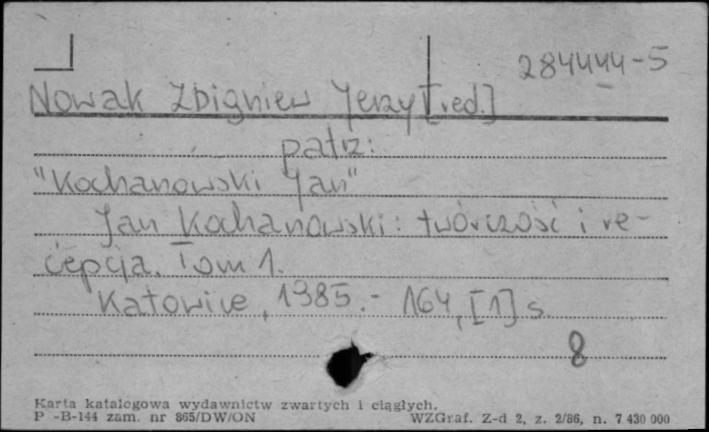 284444-5
Nowak Zbigniew Jerzy [red.]
patrz:
"Kochanowski Jan"
Jan Kochanowski: twórczość i re-
cepcja. Tom 1.
Katowice, 1985.- 164, [1] s.
8
Karta katalogowa wydawnictw zwartych i ciągłych.
P -B-144 zam. nr 865/DW/ON WZGraf. Z-d 2, z. 2/86, n. 7 430 000